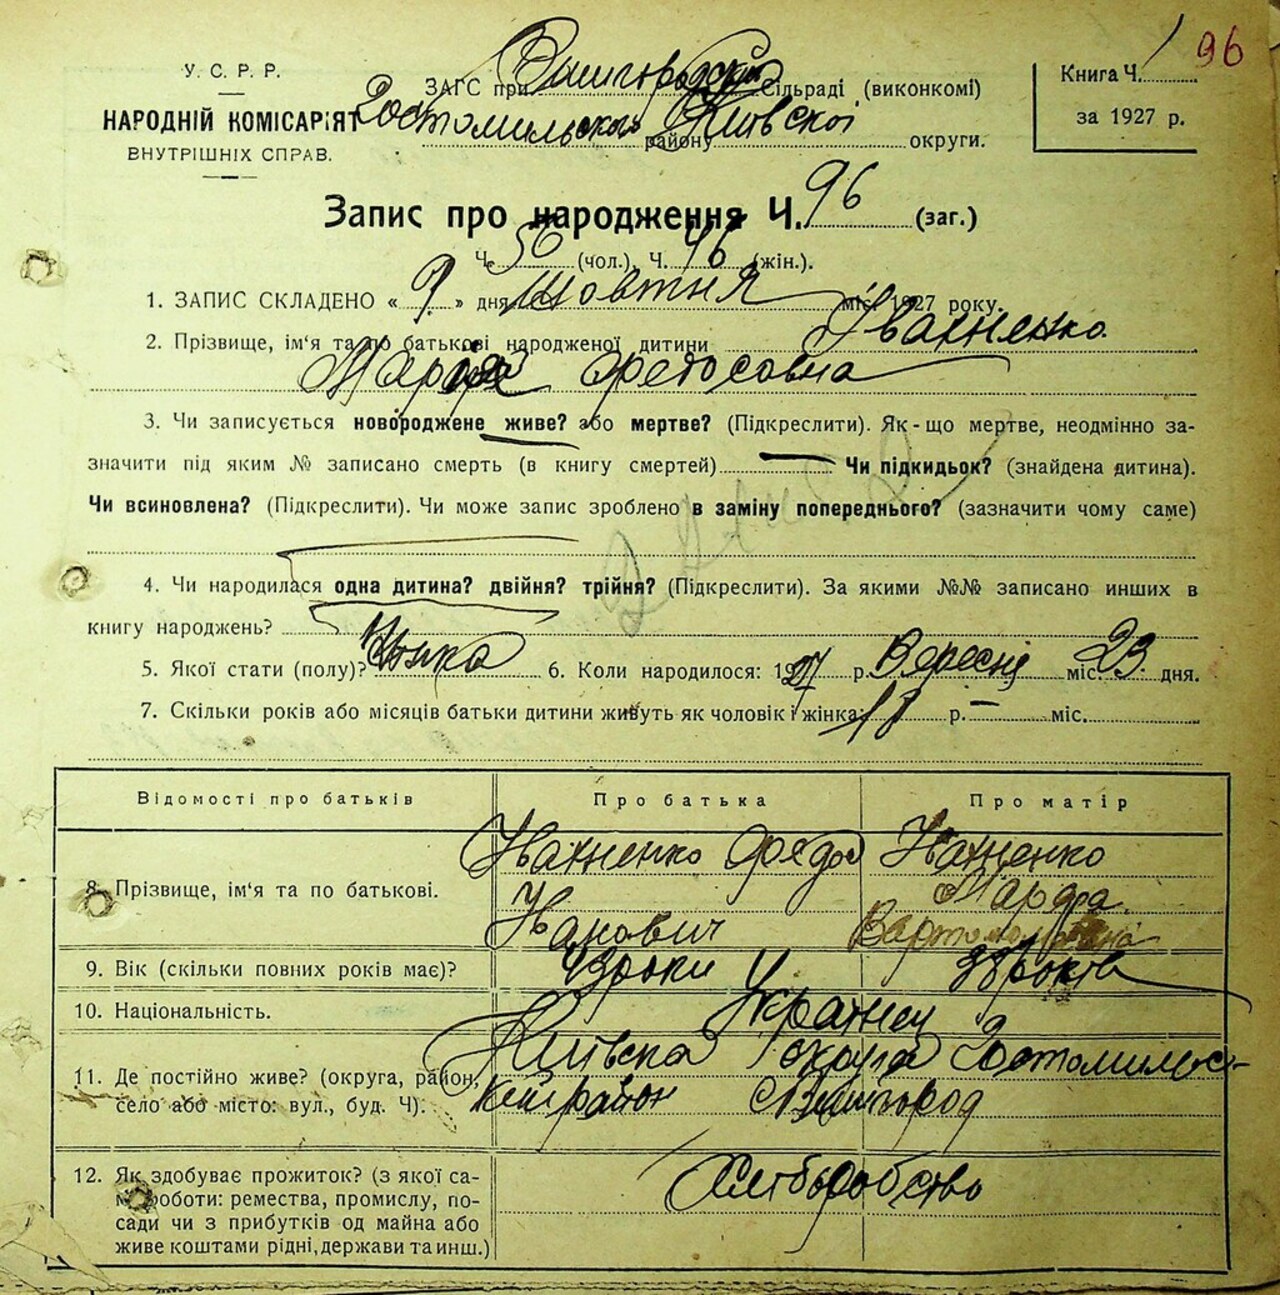 96
У. С. Р. Р.
НАРОДНІЙ КОМІСАРІЯТ
ВНУТРІШНІХ СПРАВ.
ЗАГС при Вишгородский Сільраді (виконкомі)
Гостомильского району Київскої округи.
Книга Ч.
за 1927 р.
Запис про народження Ч. 96 (заг.)
Ч. 50 (чол.), Ч. 46 (жін.).
1. ЗАПИС СКЛАДЕНО « 9 » дня Жовтня міс. 1927 року.
2. Прізвище, ім'я та по батькові народженої дитини Івахненко
Марія Федосовна
3. Чи записується новороджене живе? або мертве? (Підкреслити). Як-що мертве, неодмінно за-
значити під яким № записано смерть (в книгу смертей) Чи підкидьок? (знайдена дитина).
Чи всиновлена? (Підкреслити). Чи може запис зроблено в заміну попереднього? (зазначити чому саме)
4. Чи народилася одна дитина? двійня? трійня? (Підкреслити). За якими №№ записано инших в
книгу народжень?
5. Якої стати (полу)? Жінка 6. Коли народилося: 1927 р. Вересня міс. 23 дня.
7. Скільки років або місяців батьки дитини живуть як чоловік і жінка: 18 р. — міс.
Відомості про батьків Про батька Про матір
8. Прізвище, ім'я та по батькові.
Івахненко Федос Івахненко
Марфа
Іванович Вартоломеївна
9. Вік (скільки повних років має)? 43 роки 38 років
10. Національність. Українец
11. Де постійно живе? (округа, район,
село або місто: вул., буд. Ч).
Київска округа Гостомильс-
кий район с Вишгород
12. Як здобуває прожиток? (з якої са-
мі роботи: ремества, промислу, по-
сади чи з прибутків од майна або
живе коштами рідні, держави та инш.)
Хліборобство